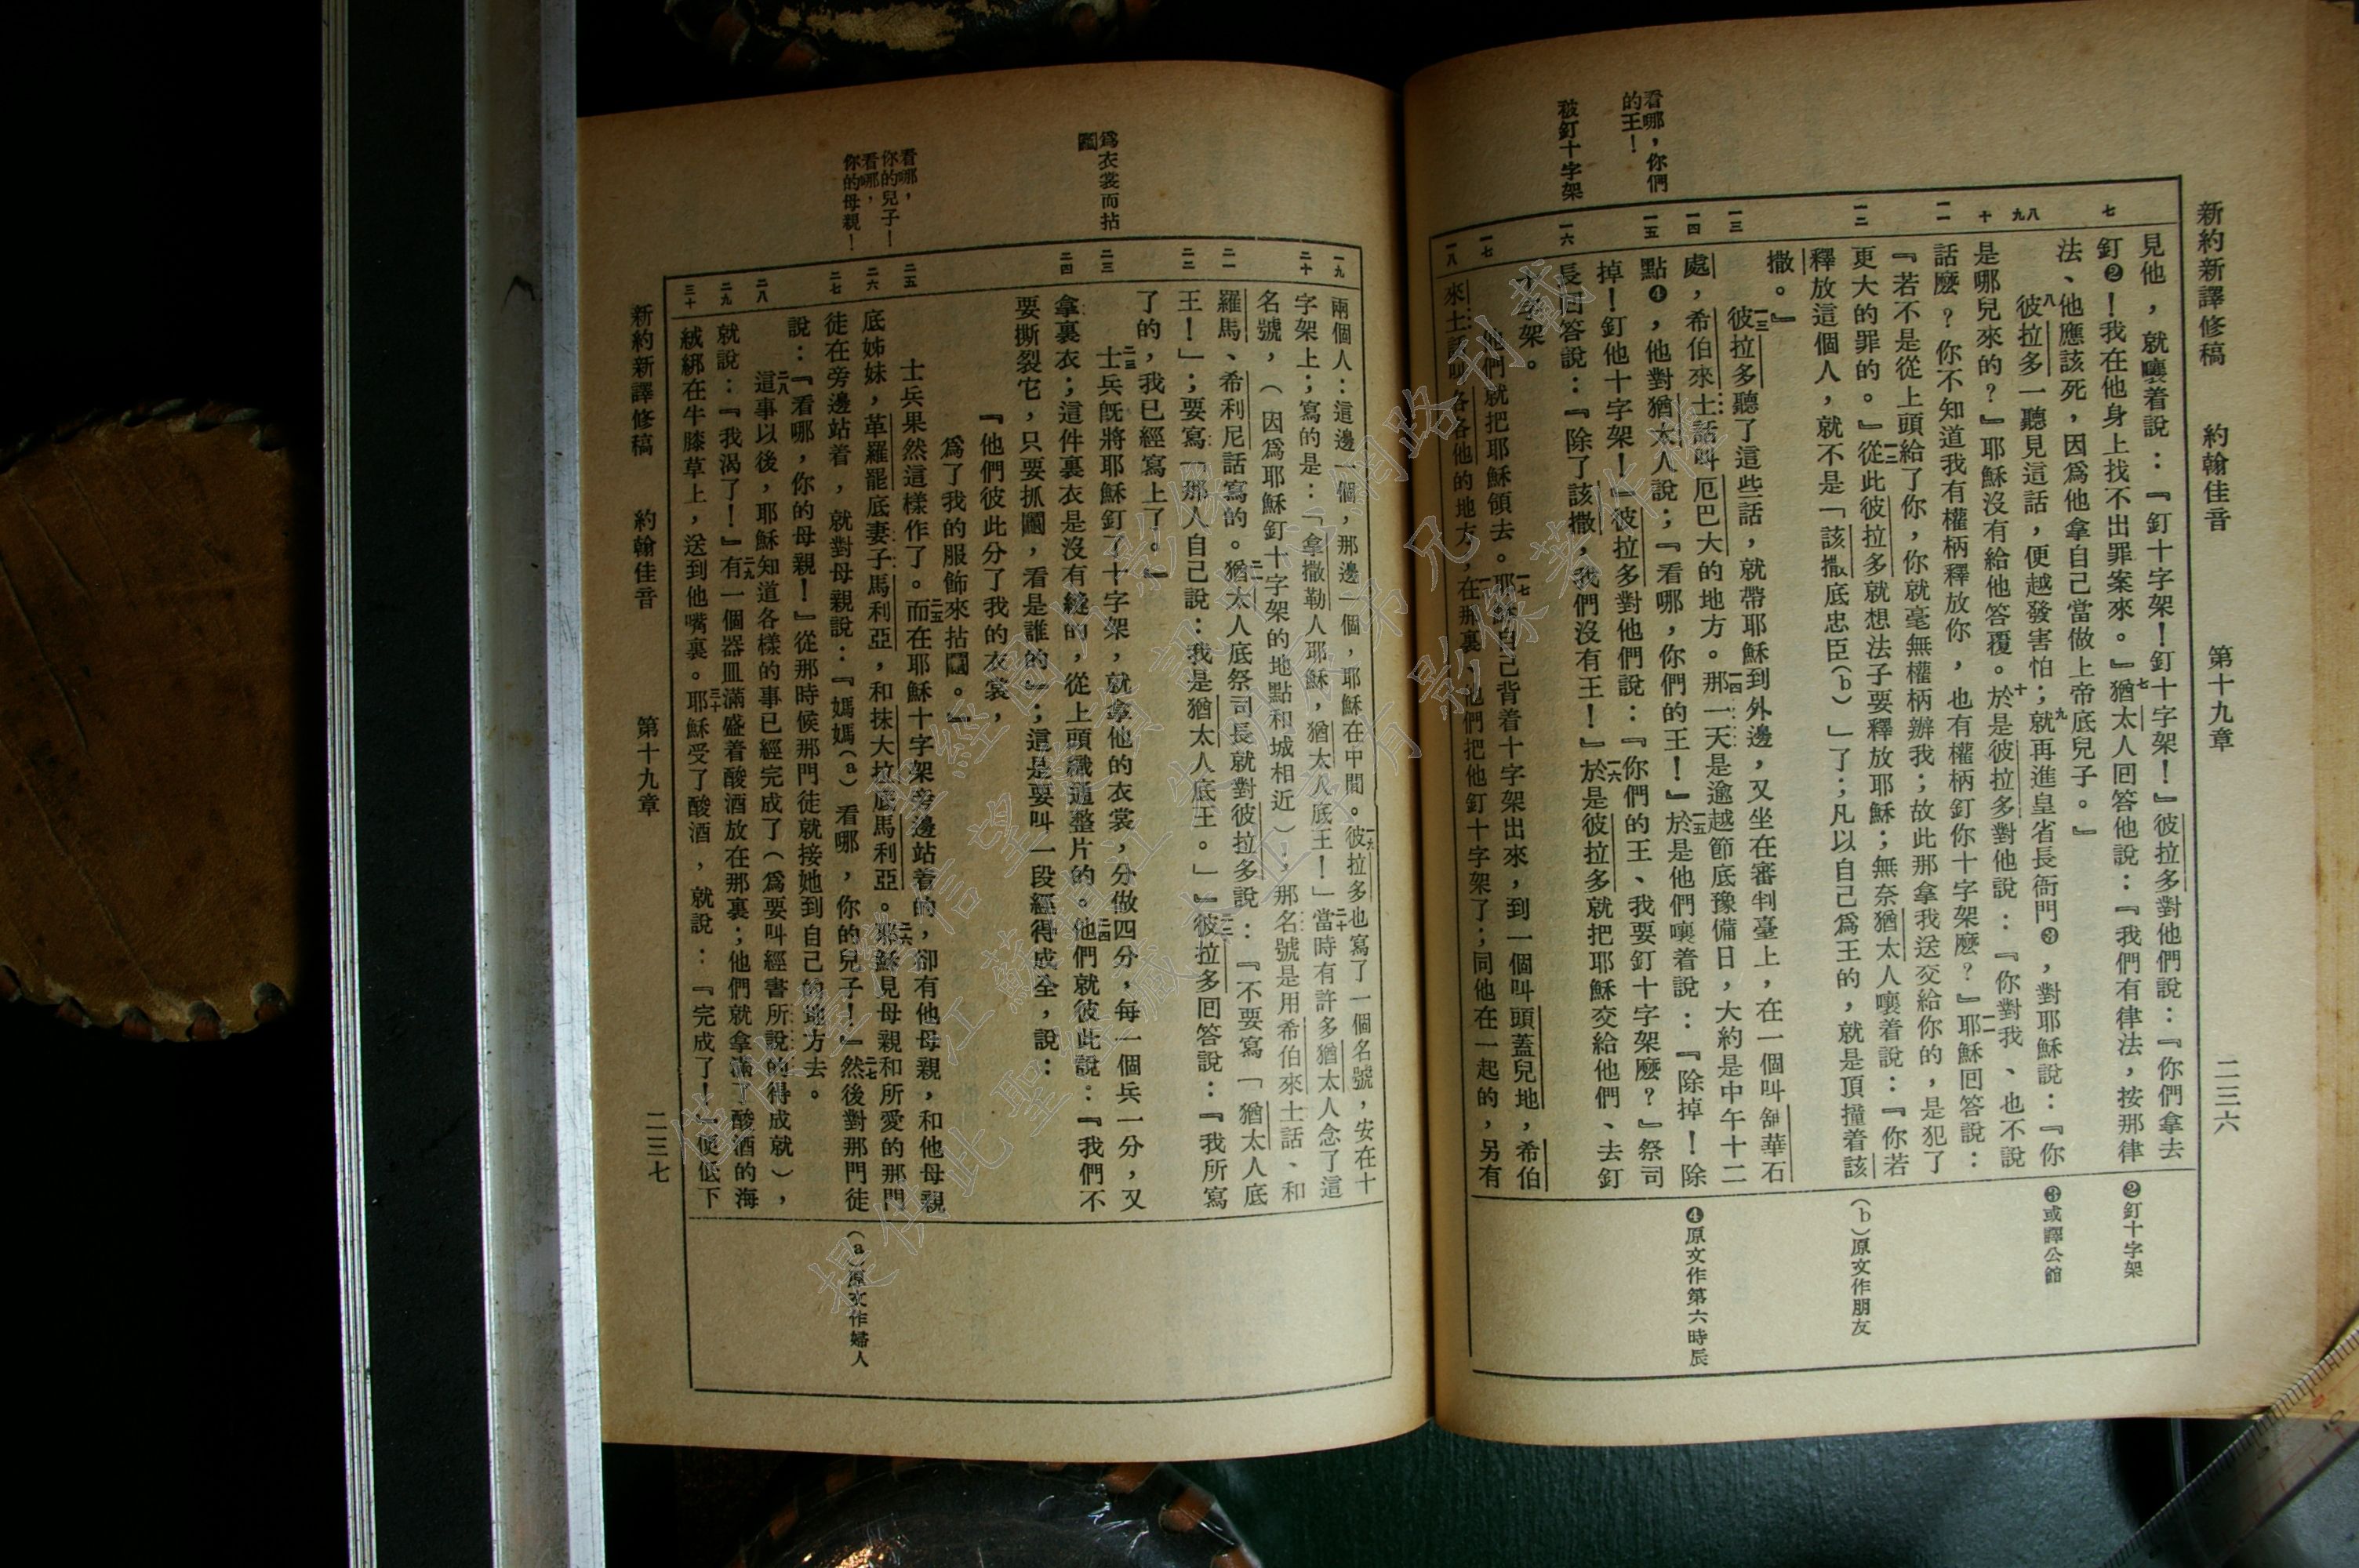 新約新譯修稿 約翰佳音 第十九章 二三六
看哪，你們
的王！
被釘十字架
七 八 九 十 一一 一二 一三 一四 一五 一六 一七 一八
見他，就嚷着說：『釘十字架！釘十字架！』彼拉多對他們說：『你們拿去
釘❷！我在他身上找不出罪案來。』七猶太人回答他說：『我們有律法，按那律
法、他應該死，因爲他拿自己當做上帝底兒子。』
八彼拉多一聽見這話，便越發害怕；九就再進皇省長衙門❸，對耶穌說：『你
是哪兒來的？』耶穌沒有給他答覆。十於是彼拉多對他說：『你對我、也不說
話麼？你不知道我有權柄釋放你，也有權柄釘你十字架麼？』一一耶穌回答說：
『若不是從上頭給了你，你就毫無權柄辦我；故此那拿我送交給你的，是犯了
更大的罪的。』一二從此彼拉多就想法子要釋放耶穌；無奈猶太人嚷着說：『你若
釋放這個人，就不是「該撒底忠臣（b）」了；凡以自己爲王的，就是頂撞着該
撒。』
一三彼拉多聽了這些話，就帶耶穌到外邊，又坐在審判臺上，在一個叫舖華石
處，希伯來土話叫厄巴大的地方。一四那一天是逾越節底豫備日，大約是中午十二
點❹，他對猶太人說；『看哪，你們的王！』一五於是他們嚷着說：『除掉！除
掉！釘他十字架！』彼拉多對他們說：『你們的王、我要釘十字架麼？』祭司
長回答說：『除了該撒，我們沒有王！』一六於是彼拉多就把耶穌交給他們、去釘
十字架。
他們就把耶穌領去。一七耶穌自己背着十字架出來，到一個叫頭蓋兒地，希伯
來土話叫各各他的地方，在那裏、他們把他釘十字架了；同他在一起的，另有
❷釘十字架
❸或譯公館
（b）原文作朋友
❹原文作第六時辰
爲衣裳而拈
鬮
看哪，
你的兒子！
看哪，
你的母親！
一九 二十 二一 二二 二三 二四 二五 二六 二七 二八 二九 三十
兩個人：這邊一個，那邊一個，耶穌在中間。一九彼拉多也寫了一個名號，安在十
字架上；寫的是：「拿撒勒人耶穌，猶太人底王！」二十當時有許多猶太人念了這
名號，（因爲耶穌釘十字架的地點和城相近）；那名號是用希伯來土話、和
羅馬、希利尼話寫的。二一猶太人底祭司長就對彼拉多說：『不要寫「猶太人底
王！」；要寫「那人自己說：我是猶太人底王。」』二二彼拉多回答說：『我所寫
了的，我已經寫上了。』
二三士兵旣將耶穌釘了十字架，就拿他的衣裳，分做四分，每一個兵一分，又
拿裏衣；這件裏衣是沒有縫的，從上頭織通整片的。二四他們就彼此說：『我們不
要撕裂它，只要抓鬮，看是誰的』；這是要叫一段經得成全，說：
『他們彼此分了我的衣裳，
爲了我的服飾來拈鬮。』
士兵果然這樣作了。二五而在耶穌十字架旁邊站着的，卻有他母親，和他母親
底姊妹，革羅罷底妻子馬利亞，和抹大拉底馬利亞。二六耶穌見母親和所愛的那門
徒在旁邊站着，就對母親說：『媽媽（a）看哪，你的兒子！』二七然後對那門徒
說：『看哪，你的母親！』從那時候那門徒就接她到自己的地方去。
二八這事以後，耶穌知道各樣的事已經完成了（爲要叫經書所說的得成就），
就說：『我渴了！』二九有一個器皿滿盛着酸酒放在那裏；他們就拿滿了酸酒的海
絨綁在牛膝草上，送到他嘴裏。三十耶穌受了酸酒，就說：『完成了！』便低下
（a）原文作婦人
新約新譯修稿 約翰佳音 第十九章 二三七